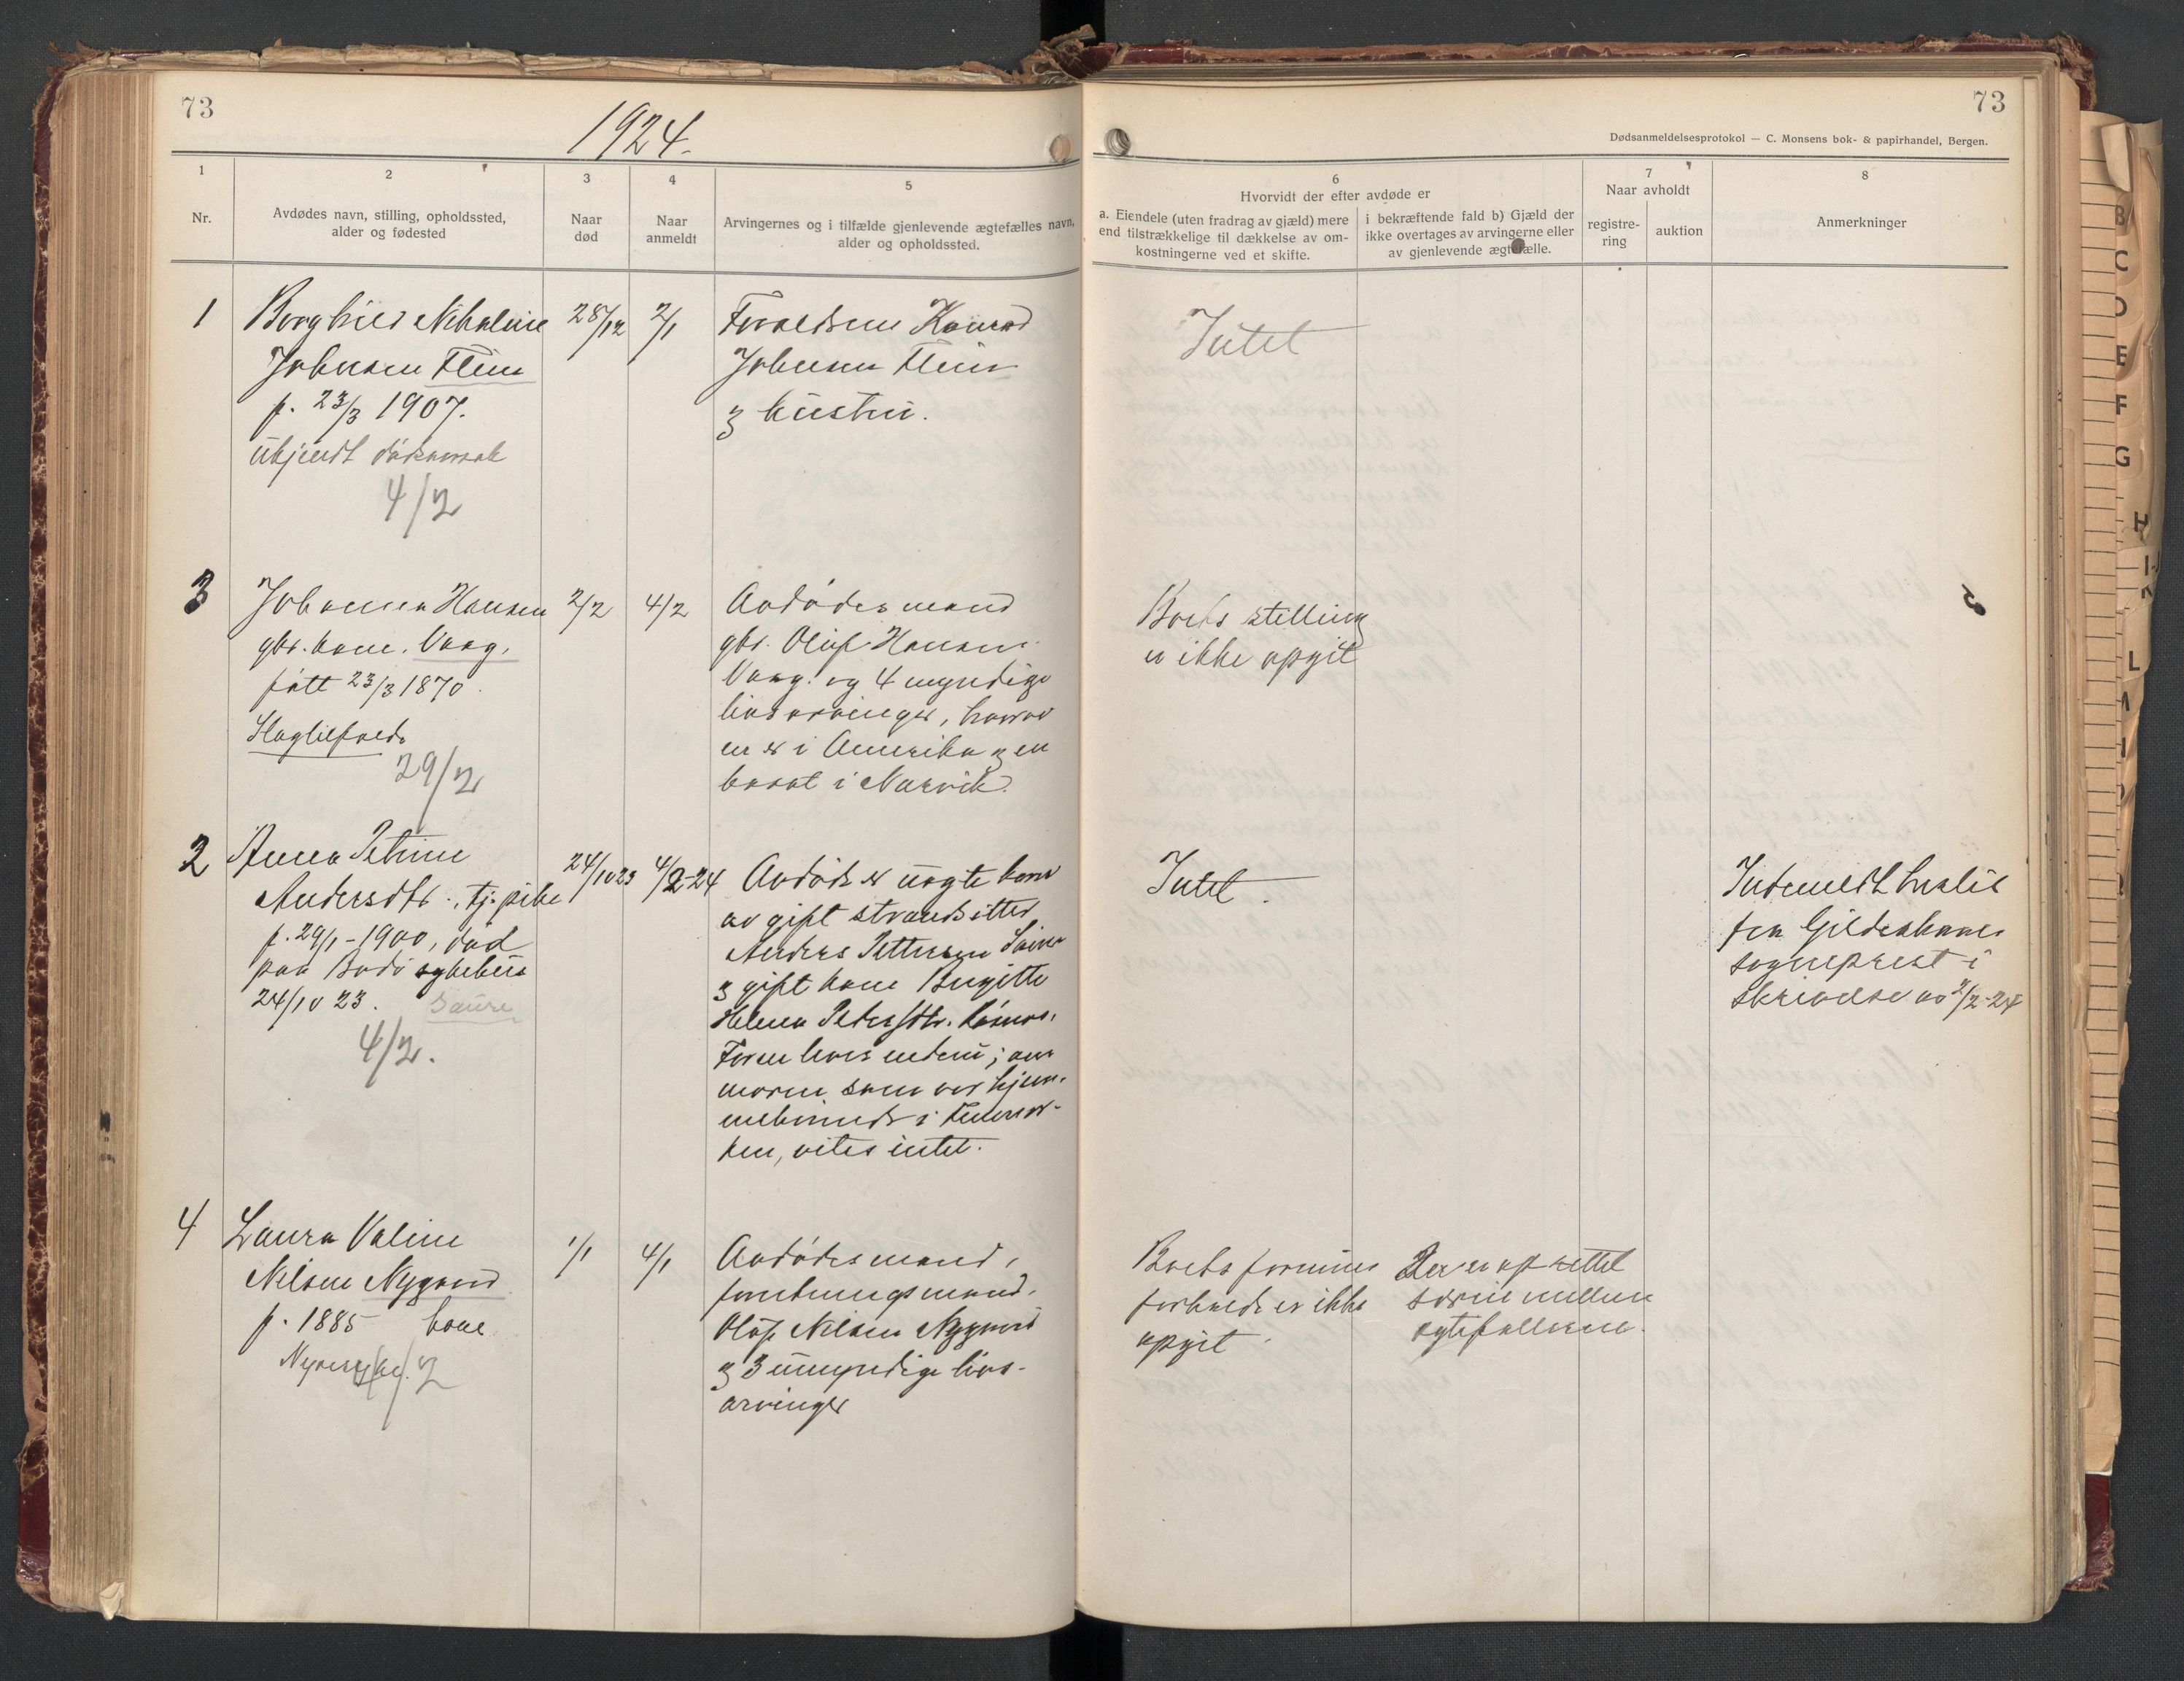 73
1924.
1
Nr.
2
Avdødes navn, stilling, opholdssted,
alder og fødested
3
Naar
død
4
Naar
anmeldt
5
Arvingernes og i tilfælde gjenlevende ægtefælles navn,
alder og opholdssted.
73
Dødsanmeldelsesprotokol — C. Monsens bok- & papirhandel, Bergen.
6
Hvorvidt der efter avdøde er
a. Eiendele (uten fradrag av gjæld) mere
end tilstrækkelige til dækkelse av om-
kostningerne ved et skifte.
i bekræftende fald b) Gjæld der
ikke overtages av arvingerne eller
av gjenlevende ægtefælle.
7
Naar avholdt
registre-
ring
auktion
8
Anmerkninger
1
Borghild Nikoline
Johnsen Flein
f. 23/3 1907.
ukjendt dødsaarsak
4/2
28/12
2/1
Foreldrene Konrad
Johnsen Flein
og hustru.
Intet
3
Johanna Hansen
gbr. kone. Vaag.
født 23/3 1870.
Slagtilfælde
29/2
2/2
4/2
Avdødes mand
gbr. Oluf Hansen
Vaag. og 4 myndige
livsarvinger, hvorav
en er i Amerika og en
bosat i Narvik.
Boets stilling
er ikke opgit
2
Anna Petrine
Andersdtr., tj. pike
f. 29/1-1900, død
paa Bodø sykehus
24/10 23.
Saura
4/2.
24/10 23
4/2-24
Avdøde er uegte barn
av gift strandsitter
Anders Pettersen
og gift kone Birgitte
Helena Pedersdtr.
Faren lever endnu; om
moren som var hjem-
mehørende i
ken, vites intet.
Intet.
Indmeldt hertil
fra Gildeskaal
sogneprest i
skrivelse av 2/2-24
4
Laura Valine
Nilsen Nygaard
f. 1885 kone
4/2
1/1
4/1
Avdødes mand,
forretningsmand.
Olaf Nilsen Nygaard
og 3 umyndige livs-
arvinger
Boets formues
forhold er ikke
opgit.
Der er oprettet
særeie mellem
egtefællerne.